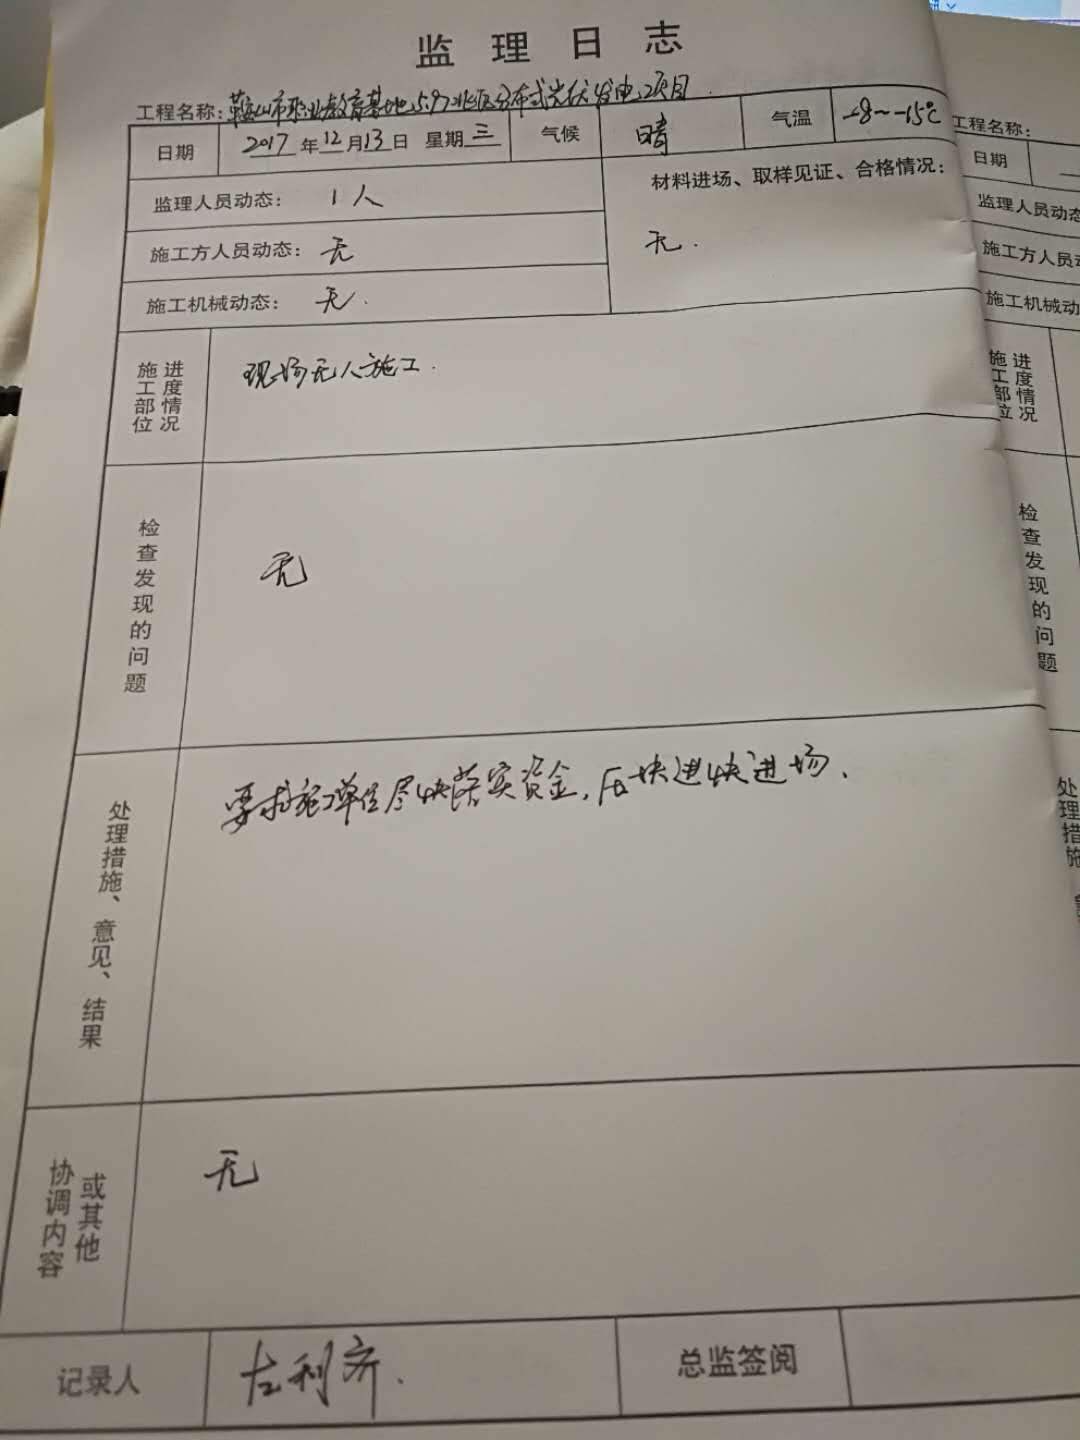 监 理 日 志
工程名称：鞍山市职业教育基地5.97兆瓦分布式光伏发电项目
日期 2017年12月13日 星期三 气候 晴 气温 -8~-15℃
监理人员动态： 1人
材料进场、取样见证、合格情况：
施工方人员动态： 无
无.
施工机械动态： 无.
施工部位 进度情况
现场无人施工.
检查发现的问题
无
处理措施、意见、结果
要求施工单位尽快落实资金,压块进快进场.
协调内容 或其他
无
记录人 左利齐. 总监签阅
工程名称：
日期
监理人员动态
施工方人员动
施工机械动
施工部位 进度情况
检查发现的问题
处理措施